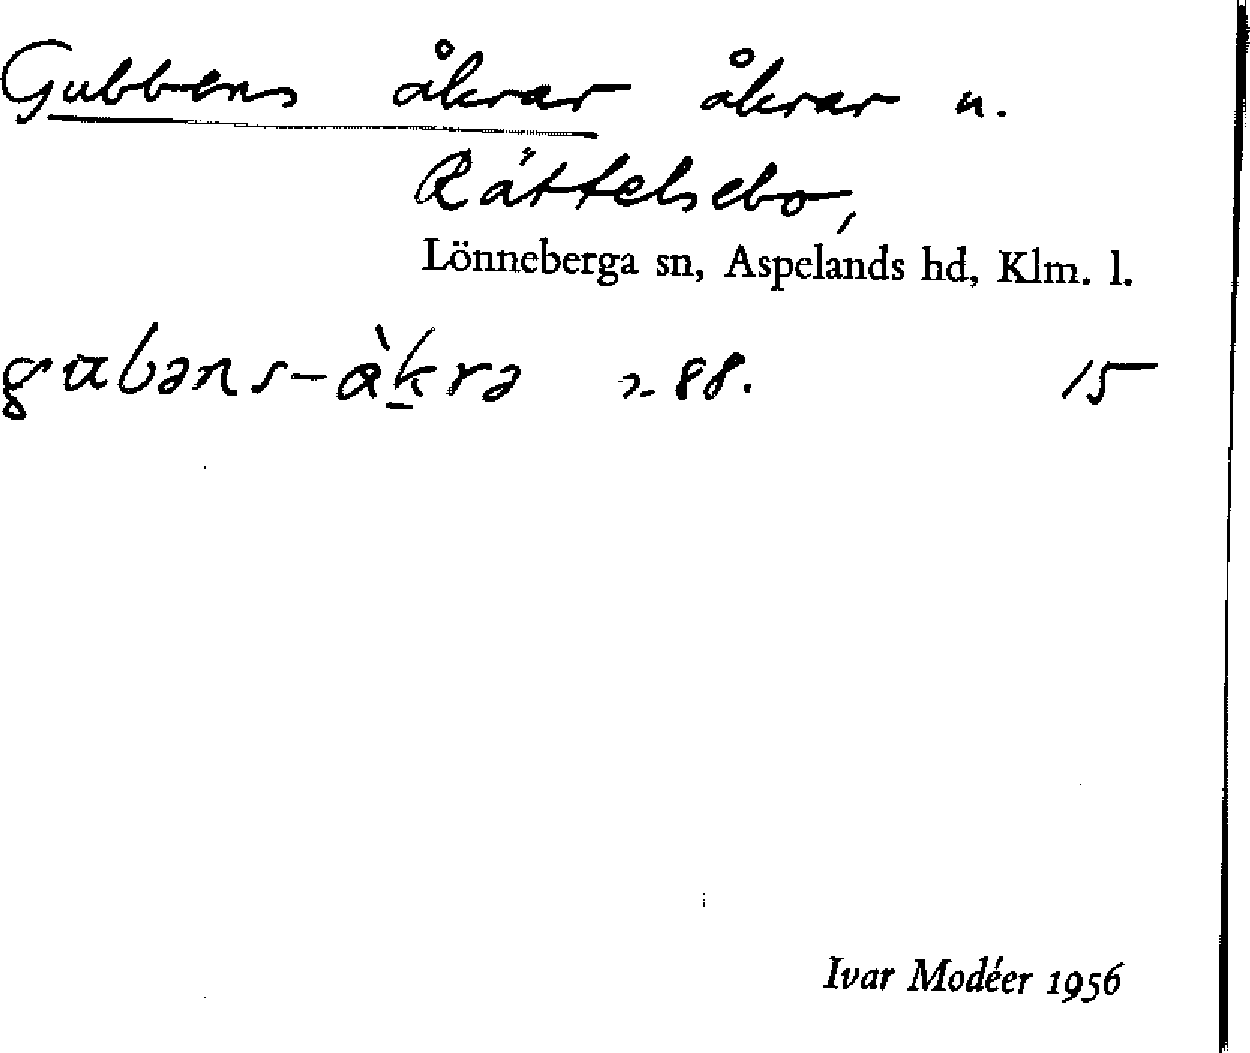 Gubbens åkrar åkrar u.
Rättelsebo,
Lönneberga sn, Aspelands hd, Klm. l.
gubəns-àkrə 288. 15
Ivar Modéer 1956